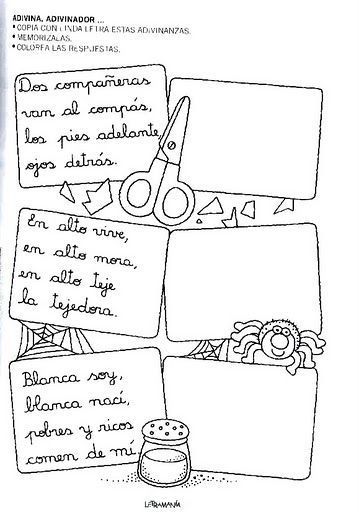 ADIVINA, ADIVINADOR ...
• COPIA CON LINDA LETRA ESTAS ADIVINANZAS.
• MEMORIZALAS.
• COLOREA LAS RESPUESTAS.
Dos compañeras
van al compás,
los pies adelante
ojos detrás.
En alto vive,
en alto mora,
en alto teje
la tejedora.
Blanca soy,
blanca nací,
pobres y ricos
comen de mí.
LETRAMANÍA